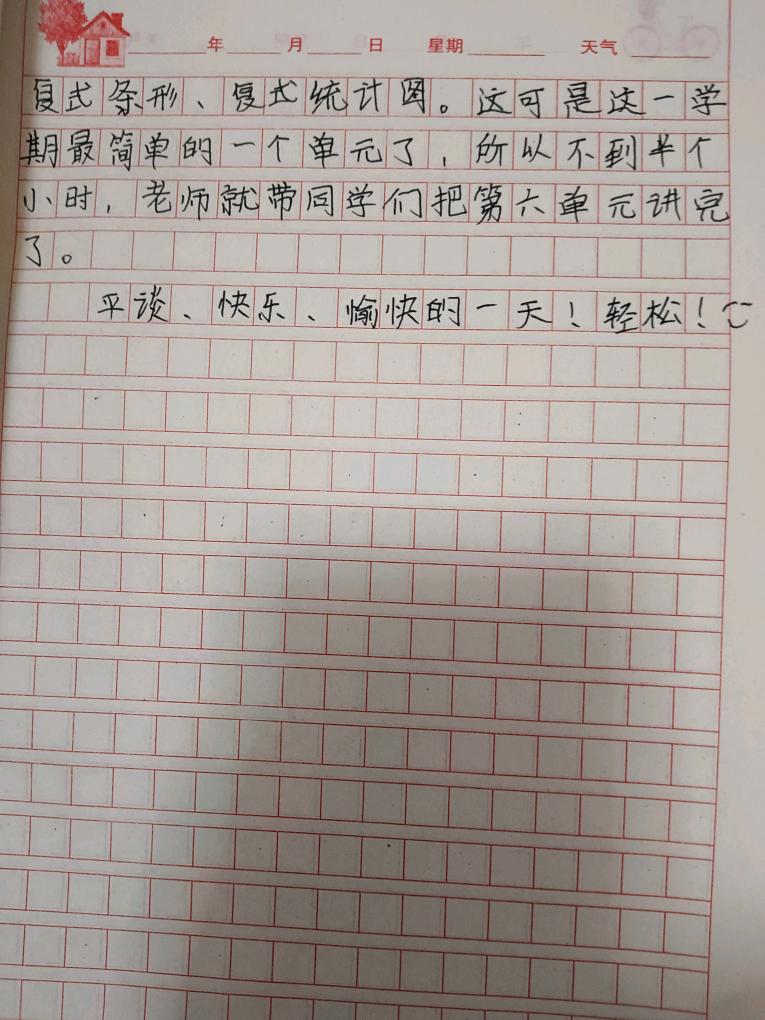 年 月 日 星期 天气
复式条形、复式统计图。这可是这一学
期最简单的一个单元了，所以不到半个
小时，老师就带同学们把第六单元讲完
了。
平谈、快乐、愉快的一天！轻松！